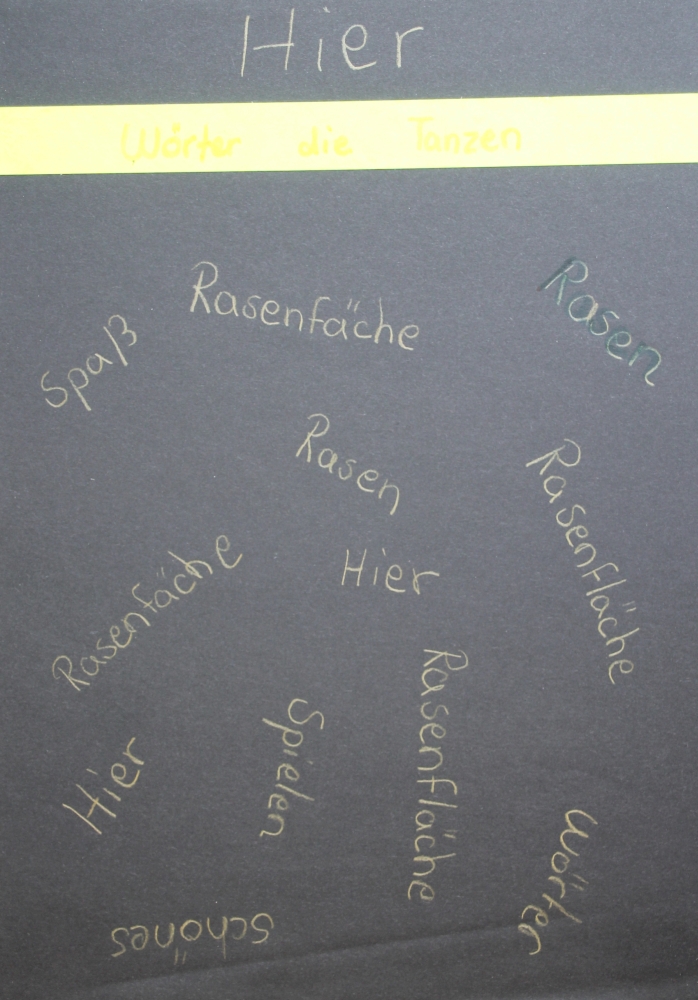 Hier
Wörter die Tanzen
Rasenfäche
Rasen
Spaß
Rasen
Rasenfläche
Rasenfäche
Hier
Rasenfläche
Spielen
Hier
Wörter
schönes